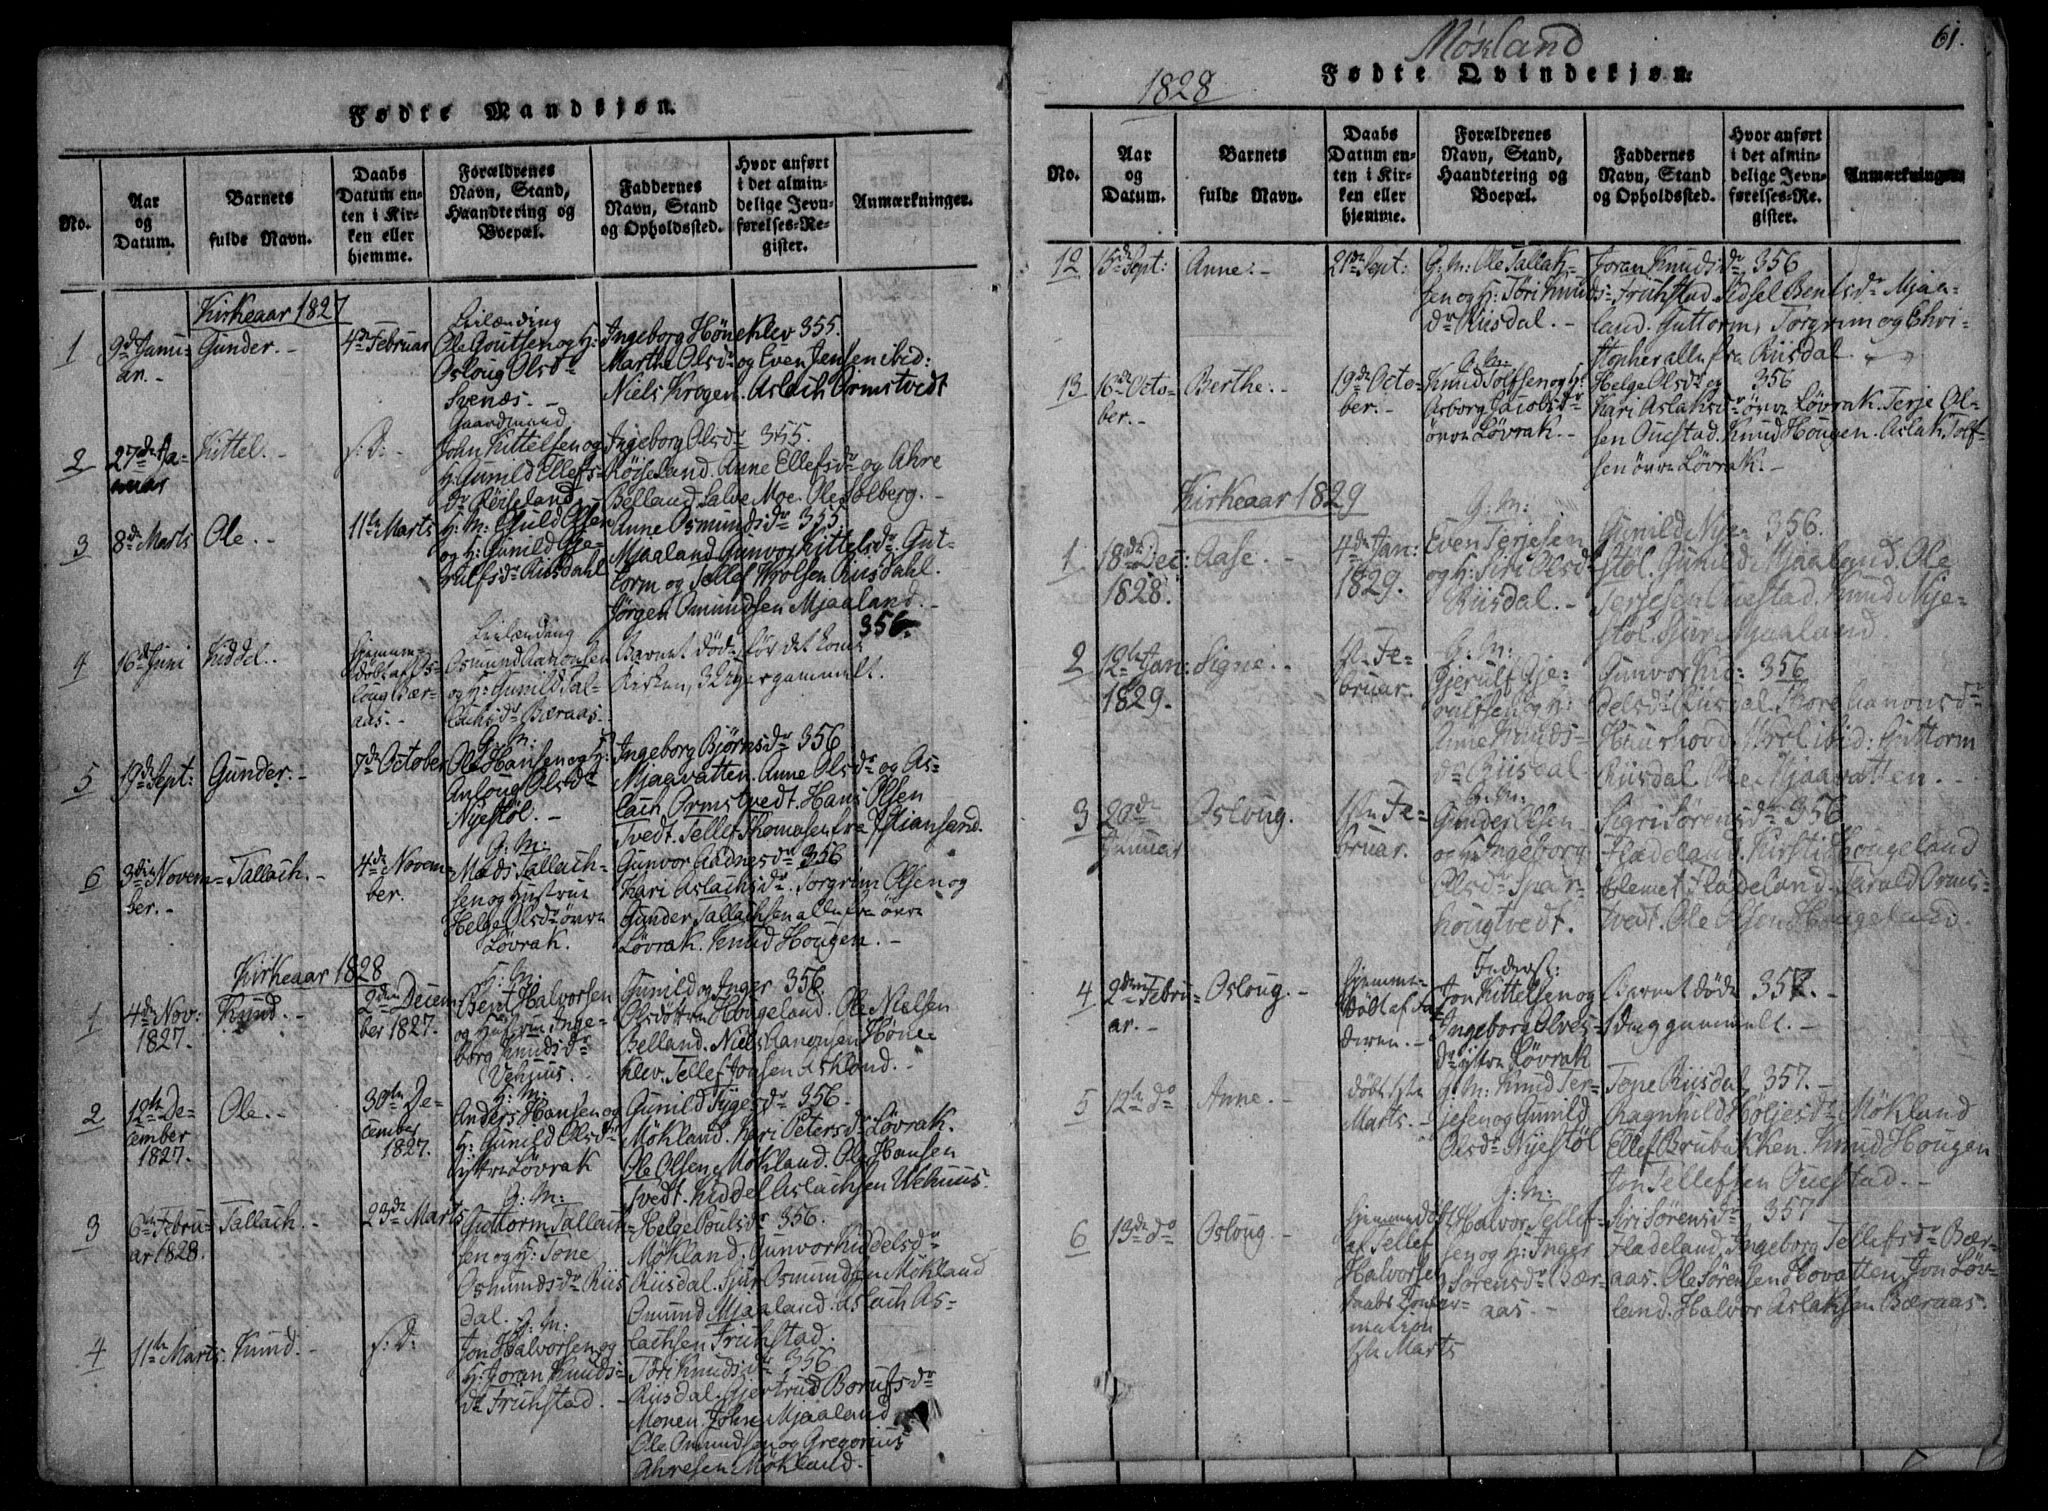 Fødte Mandskjøn.
No.
Aar og Datum.
Barnets fulde Navn.
Daabs Datum enten i Kirken eller hjemme.
Forældrenes Navn, Stand, Haandtering og Boepæl.
Faddernes Navn, Stand og Opholdssted.
Hvor anført i det almindelige Jevnførelses-Register.
Anmærkninger.
Kirkeaar 1827
1
9de Janu-
ar. -
Gunder. -
4de Februar
Leilænding
Ole Goutsen og H:
Osloug Olsdr
Svenæs. -
Ingeborg Höneklev 355.
Marthe Olsdr og Even Jensen ibid:
Niels Krogen. Aslach Ormstvedt
2
27de Ja-
nuar
Kittel. -
s. D. -
Gaardmand
John Kittelsen og
H: Gunild Ellefs-
dr Röiseland. -
Ingeborg Olsdr 355.
Röjseland. Anne Ellefsdr og Ahre
Belland. Salve Moe. Ole Solberg. -
3
8de Marts
Ole. -
11te Marts
G: M: Olsen
og H: Gunild Gje-
rulfsdr Riisdahl
Anne Osmundsdr 355.
Mjaaland. Gunvor Kittelsdr. Gut-
torm og Tellef Wrolsen Riisdahl.
Jörgen Omundsen Mjaaland. -
4
16de Juni
Kiddel. -
hjemme
döbt af Os-
loug Bær-
aas. -
Leilænding
Osmund Aanonsen
og H: Gunild Tal-
lachsdr Bæraas.
Barnet död för det kom i
Kirken, 3 Uger gammelt.
356.
5
19de Sept:
Gunder. -
7de October
G: M:
Ole Hansen og H:
Anloug Olsdr
Nyestöl. -
Ingeborg Bjørnsdr 356
Mjaavatten. Anne Olsdr og As-
lach Ormstvedt. Hans Olsen
Tvedt. Tellef Thomasen fra Xstiansand.
6
3die Novem-
ber. -
Tallach. -
4de Novem-
ber.
G: M:
Mads Tallach-
sen og Hustrue
Helge Olsdr övre
Lövrak.
Gunvor Aadnesdr 356
Kari Aslachsdr. Torgrim Olsen og
Gunder Tallachsen alle fra övre
Lövrak. Knud Hougen. -
Kirkeaar 1828
1
4de Nov:
1827.
Knud. -
2den Decem-
ber 1827.
G: M:
Bent Halvorsen
og Hustrue Inge-
borg Knudsdr
Vehuus.
Gunild og Inger 356.
Olsdöttre Hougeland. Ole Nielsen
Belland. Niels Aanonsen Höne-
klev. Tellef Jonsen Askland. -
2
12te De-
cember
1827.
Ole. -
30te De-
cember
1827.
G: M:
Anders Hansen og
H: Gunild Olsdr
Lövrak
Gunild Tygesdr 356.
Mökland. Kari Petersdr Lövrak.
Ole Olsen Mökland. Ole Hansen
Tvedt. Kiddel Aslachsen Wehuus.
3
6te Febru-
ar 1828.
Tallach. -
23de Marts
G: M:
Guttorm Tallach-
sen og H: Tone
Osmundsdr Riis-
dal.
Helge Poulsdr 356.
Mökland. Gunvor Kiddelsdr
Riisdal. Sjur Osmundsen Mökland
Omund Mjaaland. Aslach As-
lachsen Friihstad.
4
11te Marts
Knud. -
s. D:
G: M:
Jon Halvorsen og
H: Joran Knuds-
dr Friihstad. -
Töri Knudsdr 356
Riisdal. Gjertrud Borufsdr
Monen. John Mjaaland
Ole Omundsen og Gregorius
Ahresen Mökland. -
Mökland
61.
1828
Fødte Qvindekjøn.
No.
Aar og Datum.
Barnets fulde Navn.
Daabs Datum enten i Kirken eller hjemme.
Forældrenes Navn, Stand, Haandtering og Boepæl.
Faddernes Navn, Stand og Opholdssted.
Hvor anført i det almindelige Jevnførelses-Register.
Anmærkninger.
12
15de Sept:
Anne. -
21de Sept:
G: M: Ole Tallak-
sen og H: Töri Knuds-
dr Riisdal. -
Joran Knudsdr 356
Friihstad. Sidsel Bentsdr Mjaa-
land. Guttorm, Torgrim og Chri-
stopher alle fra Riisdal
13
16de Octo-
ber. -
Berthe. -
19de Octo-
ber. -
G: M:
Knud Tolfsen og H:
Asborg Jacobsdr
övre Lövrak. -
Helge Olsdr og 356
Kari Aslaksdr övre Lövrak. Terje Ol-
sen Ouestad. Knud Hougen. Aslak Tolf-
sen övre Lövrak. -
Kirkeaar 1829
1
18de Dec:
1828.
Aase. -
4de Jan:
1829.
G: M:
Even Terjesen
og H: Siri Olsdr
Riisdal. -
Gunild Nye- 356.
stöl. Gunild Mjaaland. Ole
Terjesen Ouestad. Knud Nye-
stöl. Sjur Mjaaland.
2
12te Jan:
1829.
Signe. -
1ste Fe-
bruar.
G: M:
Gjerulf Gje-
rulfsen og H:
Anne Knuds-
dr Riisdal
Gunvor Kid- 356
delsdr Riisdal. Thore Aanonsdr
Haurhove. Wrol ibid: Guttorm
Riisdal. Ole Mjaavatten. -
3
20de
Januar
Osloug.
1ste Fe-
bruar.
G: M:
Gunder Olsen
og H: Ingeborg
Olsdr Spar-
hougtvedt.
Sigri Sörensdr 356
Fladeland. Kirsti Hougeland
Clemet Fladeland. Harald Orms-
tvedt. Ole Olsen Hougeland.
4
2den Febru-
ar. -
Osloug. -
hjemme-
döbt af Fa-
deren. -
Inderst:
Jon Kittelsen og
Ingeborg Olves-
dr östre Lövrak
Barnet döde 357. -
1 Dag gammelt. -
5
12te do
Anne. -
döbt 1ste
Marts. -
G: M: Knud Ter-
jesen og Gunild
Olsdr Nyestöl
Tone Riisdal 357. -
Ragnhild Höljesdr Mökland
Ellef Brubakken. Knud Hougen
Jon Tellefsen Ouestad. -
6
13de do
Osloug. -
hjemmedöbt
af Tellef
Halvorsen
Daabs Confir-
mation
1ste Marts
G: M:
Halvor Tellef-
sen og H: Inger
Sörensdr Bær-
aas. -
Siri Sörensdr 357
Fladeland. Ingeborg Tellefsdr Bær-
aas. Ole Sörensen Hovatten. Jon Löv-
land. Halvor Aslaksen Bæraas.